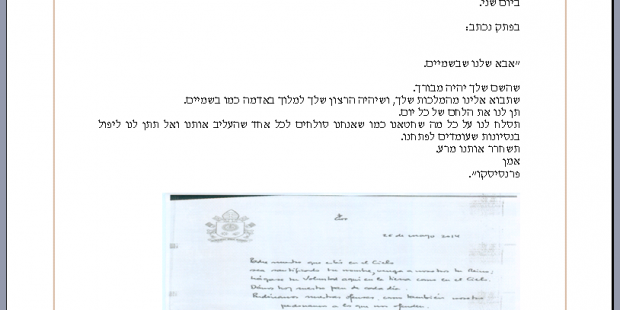 ביום שני.
בפתק נכתב:
״אבא שלנו שבשמיים.
שהשם שלך יהיה מבורך.
שתבוא אלינו מהמלכות שלך, ושיהיה הרצון שלך למלוך באדמה כמו בשמיים.
תן לנו את הלחם של כל יום.
תסלח לנו על כל מה שחטאנו כמו שאנחנו סולחים לכל אחד שהעליב אותנו ואל תתן לנו ליפול
בנסיונות שעומדים לפתחנו.
תשחרר אותנו מרע.
אמן
פרנסיסקו״.
25 de mayo 2014
Padre nuestro que estás en el Cielo
sea santificado tu nombre, venga a nosotros tu Reino;
hágase tu Voluntad aquí en la tierra como en el Cielo.
Danos hoy nuestro pan de cada día.
Perdónanos nuestras ofensas, como también nosotros
perdonamos a los que nos ofenden.